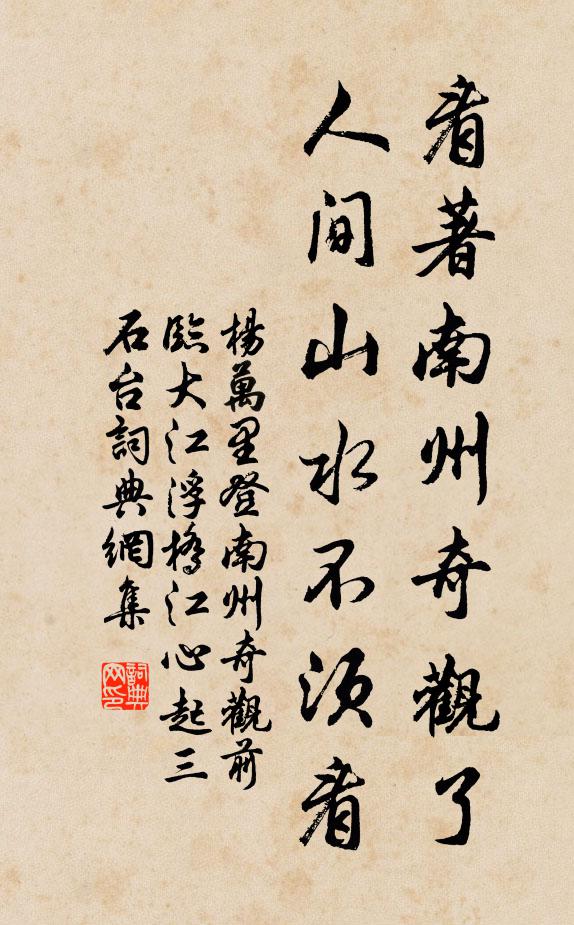 看著南州奇觀了
人間山水不須看
楊萬里登南州奇觀前
臨大江浮橋江心起三
石台詞典網集
詞典
网印